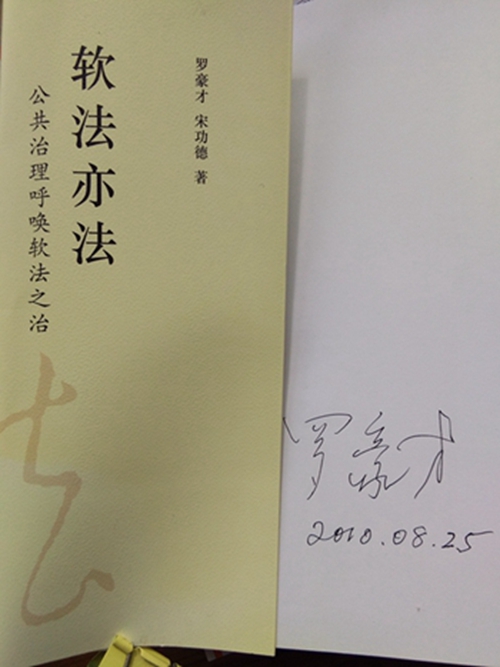 软法亦法
公共治理呼唤软法之治
罗豪才 宋功德 著
罗豪才
2010.08.25